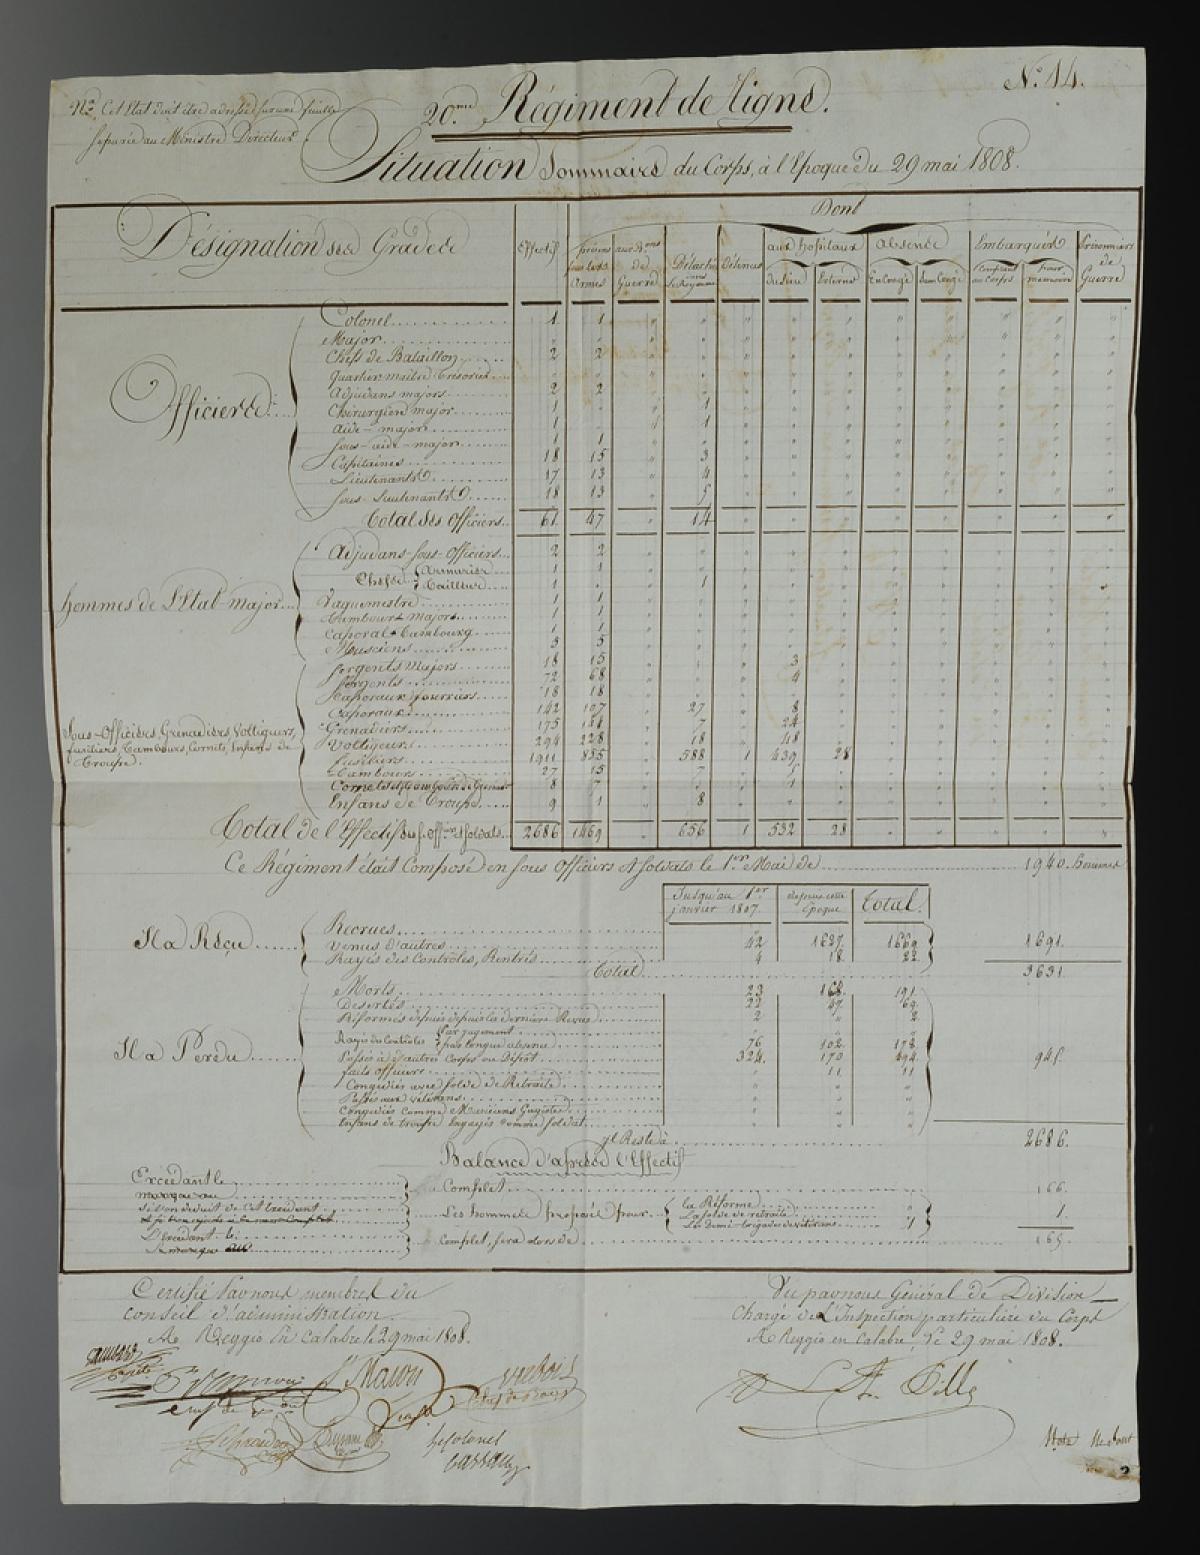 N.° 14.
Nª Cet Etat doit être adressé sur une feuille
Separée au Ministre Directeur
20.me Régiment de Ligne.
Situation Sommaire du Corps, à l'Epoque du 29 mai 1808.
Dont
Désignation des Grades
Effectif
présens sous les armes
aux de Guerre
Détachés Royaume
Détenus
aux hopitaux
du lieu
Externe
absence
En Congé
sans Congé
Embarqués
Comptant au Corps
pour mémoire
Prisonniers de Guerre
Officiers
Colonel 1 1
Major
Chefs de Bataillon 2 2
Quartier-maître trésorier
Adjudans majors 2 2
Chirurgien major 1 1
Aide-major 1 1
Sous-aide-major 1 1
Capitaines 18 15 3
Lieutenants 17 13 4
Sous-Lieutenants 18 13 5
Total des Officiers 61 47 14
hommes de l'Etat-major
Adjudans-Sous-Officiers 2 2
Chefs { Armurier 1 1
Tailleur 1 1
Vaguemestre 1 1
Tambours majors 1 1
Caporal-Tambour 1 1
Musiciens
Sous-Officiers, Grenadiers, Voltigeurs,
fusiliers, Tambours, Cornets, Enfans de
Troupe.
Sergents Majors 18 15 3
Sergents 72 68 4
Caporaux fourriers 18 18
Caporaux 142 107 27 8
Grenadiers 175 7 24
Voltigeurs 294 228 18 48
fusiliers 1911 855 588 1 439 28
Tambours 27 15 7 5
Cornets 8 7 1
Enfans de Troupe 9 1 8
Total de l'Effectif des s. off.ers & soldats 2686 1469 656 1 532 28
Ce Régiment était Composé en sous Officiers & soldats le 1.er Mai de 1940. hommes
Jusqu'au 1.er janvier 1807.
depuis cette Epoque
Total.
Il a Reçu
Recrues
Venus d'autres 42 1627 1669
Rayés des Contrôles, Rentrés 4 18 22
1691.
Total 3631
Il a Perdu
Morts 23 168 191
Desertés 22 47 69
Réformés depuis depuis la derniere Revue 2 " 2
Rayés des Contrôles { Par jugement
pour longue absence 76 102 178
Passés à d'autres Corps ou Dépôt 324 170 494
faits officiers " 11 11
Congédiés avec solde de Retraite
Passés aux vétérans
Congédiés Comme Musiciens Gagistes
Enfans de troupe Engagés comme soldat
945.
il Reste à 2686.
Balance d'après l'Effectif
Excédant le
manque au
Complet 166.
si on deduit de cet excédant
Les hommes proposés pour { la Réforme
La solde de retraite
Les demi-brigades de vétérans 1
1.
L'Excédant le
Le manque au
Complet, sera alors de 165.
Certifié Par nous membres du
Conseil d'administration.
A Reggio En Calabre le 29 mai 1808.
Vu par nous Général de Division
Chargé de l'Inspection particulière du Corps
A Reggio en Calabre, le 29 mai 1808.
le Colonel
2